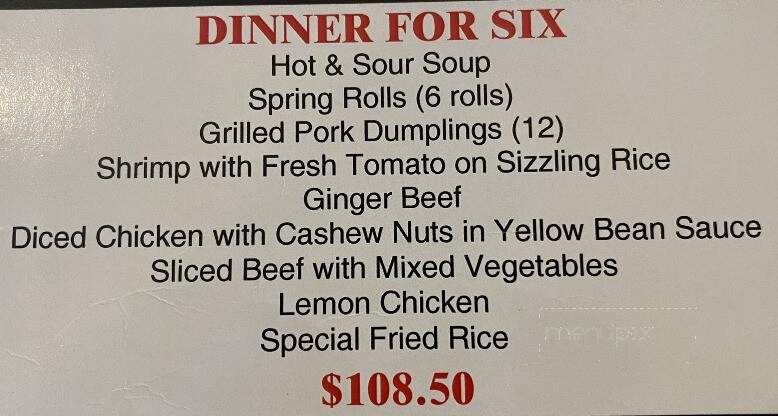 DINNER FOR SIX
Hot & Sour Soup
Spring Rolls (6 rolls)
Grilled Pork Dumplings (12)
Shrimp with Fresh Tomato on Sizzling Rice
Ginger Beef
Diced Chicken with Cashew Nuts in Yellow Bean Sauce
Sliced Beef with Mixed Vegetables
Lemon Chicken
Special Fried Rice
menupix
$108.50